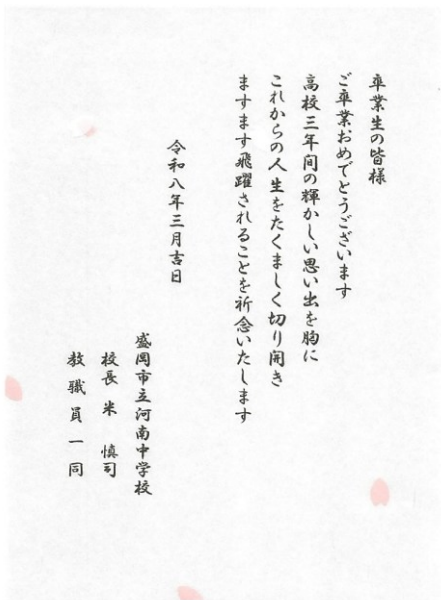 卒業生の皆様
ご卒業おめでとうございます
高校三年間の輝かしい思い出を胸に
これからの人生をたくましく切り開き
ますます飛躍されることを祈念いたします
令和八年三月吉日
盛岡市立河南中学校
校長 米 慎司
教職員一同